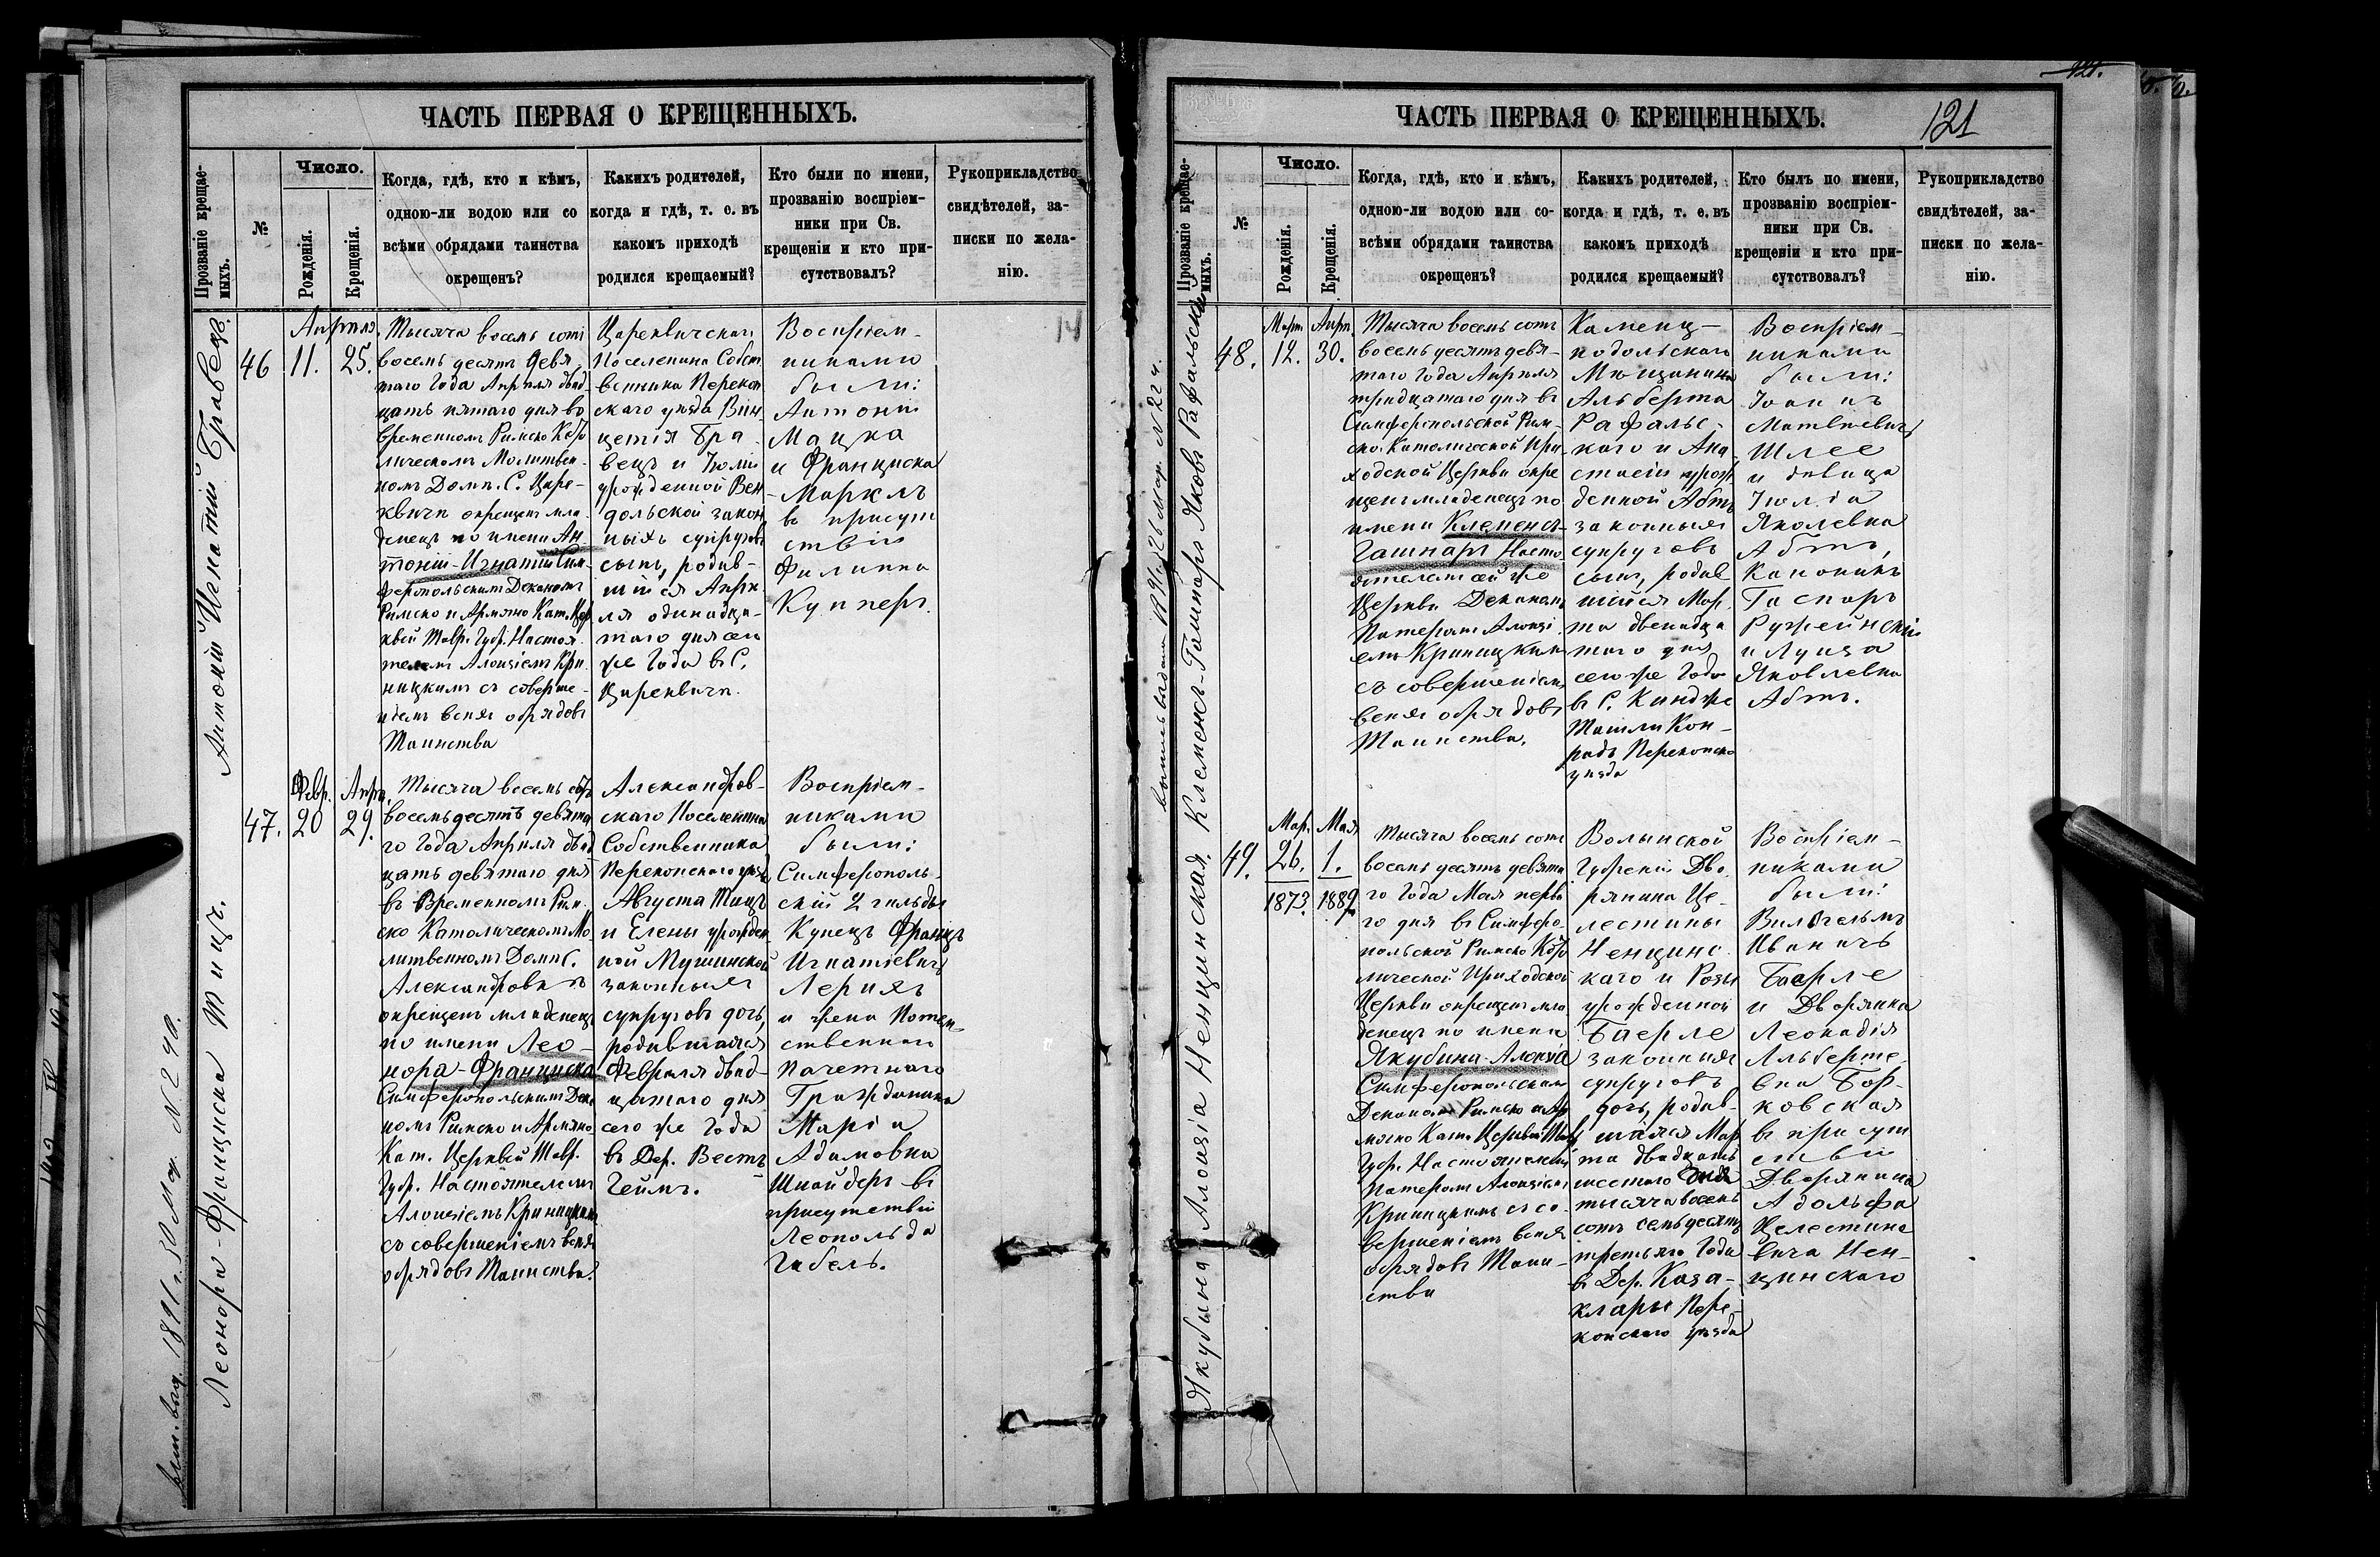 ЧАСТЬ ПЕРВАЯ О КРЕЩЕННЫХЪ.
Прозваніе крещае-
мыхъ.
№
Число.
Рожденія.
Крещенія.
Когда, гдѣ, кто и кѣмъ,
одною-ли водою или со
всѣми обрядами таинства
окрещенъ?
Какихъ родителей,
когда и гдѣ, т. е. въ
какомъ приходѣ
родился крещаемый?
Кто были по имени,
прозванію воспріем-
ники при Св.
крещеніи и кто при-
сутствовалъ?
Рукоприкладство
свидѣтелей, за-
писки по жела-
нію.
14
Антоній Игнатій Бравецъ.
46
Апрѣля
11.
25.
Тысяча восемь сотъ
восемь десятъ девя-
таго Года Апрѣля двад-
цать пятаго дня во
временномъ Римско Като
лическомъ Молитвен-
номъ Домѣ С. Царе-
квичи окрещенъ мла-
денецъ по имени Ан-
тоній-Игнатій Сим-
феропольскимъ Деканомъ
Римско и Армяно Кат. Цер
квей Тавр. Губ. Настоя-
телемъ Алоизіемъ Кри
ницкимъ съ соверше-
ніемъ всѣхъ обрядовъ
Таинства
Цареквичскаго
Поселенина Собст
венника Перекоп
скаго уѣзда Вин
цетія Бра-
вецъ и Юліи
урожденной Вен
дольской закон
ныхъ супруговъ
сынъ, родив-
шійся Апрѣ
ля одинадца-
таго дня сего
же Года въ С.
Цареквичи.
Воспріем-
никами
были:
Антоній
Мацка
и Франциска
Маркль
въ присут
ствіи
Филиппа
Купперъ.
Леонора-Франциска Тицъ.
вып. выд. 1891 г. 30 Мар. N 240.
47.
Февр.
20
Апрѣ.
29.
Тысяча восемь сотъ
восемьдесятъ девята
го Года Апрѣля двад
цать девятаго дня
въ Временномъ Рим-
ско Католическомъ Мо-
литвенномъ Домѣ С.
Александровкѣ
окрещенъ младенецъ
по имени Лео-
нора-Франциска
Симферопольскимъ Дека
номъ Римско и Армяно
Кат. Церквей Тавр.
Губ. Настоятелемъ
Алоизіемъ Криницкимъ
съ совершеніемъ всѣхъ
обрядовъ Таинства.
Александров-
скаго Поселенина
Собственника
Перекопскаго уѣзда
Августа Тицъ
и Елены урожден
ной Мушинской
законныхъ
супруговъ дочь,
родившаяся
Февраля двад-
цатаго дня
сего же Года
въ Дер. Вестъ
Геймъ.
Воспріем-
никами
были:
Симферополь-
скій 2 гильды
Купецъ Францъ
Игнатіевичъ
Лерихъ
и жена Потом-
ственнаго
Почетнаго
Гражданина
Марія
Адамовна
Шнайдеръ въ
присутствіи
Леопольда
Габель.
ЧАСТЬ ПЕРВАЯ О КРЕЩЕННЫХЪ.
121
Прозваніе крещае-
мыхъ.
№
Число.
Рожденія.
Крещенія.
Когда, гдѣ, кто и кѣмъ,
одною-ли водою или со-
всѣми обрядами таинства
окрещенъ?
Какихъ родителей,
когда и гдѣ, т. е. въ
какомъ приходѣ
родился крещаемый?
Кто былъ по имени,
прозванію воспріем-
ники при Св.
крещеніи и кто при-
сутствовалъ?
Рукоприкладство
свидѣтелей, за-
писки по жела-
нію.
Клеменсъ-Гашпаръ Яковъ Рафальскій
48.
Март.
12.
Апр.
30.
Тысяча восемь сотъ
восемь десятъ девя-
таго Года Апрѣля
тридцатаго дня въ
Симферопольской Рим-
ско. Католической При
ходской Церкви окре
щенъ младенецъ по
имени Клеменсъ-
Гашпаръ Насто
ятелемъ сей же
Церкви Деканомъ
Патеромъ Алоизі
емъ Криницкимъ
съ совершеніемъ
всѣхъ обрядовъ
Таинства.
Каменец-
подольскаго
Мѣщанина
Альберта
Рафальс-
каго и Ана
стасіи урож
денной Абтъ
законныхъ
супруговъ
сынъ, родив
шійся Мар
та двенадца
таго дня
сего же Года
въ С. Кинджe
Ташли Кон-
радъ Перекопско
уѣзда
Воспріем-
никами
были:
Іоаннъ
Матвѣевичъ
Шлее
и дѣвица
Юлія
Яколевна
Абтъ,
Каноникъ
Гаспаръ
Ружейнскій
и Луиза
Яковлевна
Абтъ.
Якубина Алоизія Ненцинская.
49.
Мар.
26.
1873.
Мая
1.
1889.
Тысяча восемь сотъ
восемь десятъ девята
го Года Мая перва
го дня въ Симферо-
польской Римско Като
лической Приходской
Церкви окрещенъ мла
денецъ по имени
Якубина-Алоизія
Симферопольскимъ
Деканомъ Римско и Ар
мяно Кат. Церквей Тавр
Губ. Настоятелемъ
Патеромъ Алоизіемъ
Криницкимъ съ со-
вершеніемъ всѣхъ
обрядовъ Таин-
ства
Волынской
Губерніи Дво-
рянина Це-
лестины
Ненцинс-
каго и Розы
урожденной
Баерле
законныхъ
супруговъ
дочь, родив-
шаяся Мар
та двадцать
шестаго дня
тысяча восемь
сотъ семьдесятъ
третьяго Года
въ Дер. Каза-
клары Пере-
копскаго уѣзда
Воспріем-
никами
были:
Вильгельмъ
Иванычъ
Баерле
и Дворянка
Леокадія
Альберто-
вна Бор-
ковская
въ присут
ствіи
Дворянина
Адольфа
Целестино
вича Нен-
цинскаго